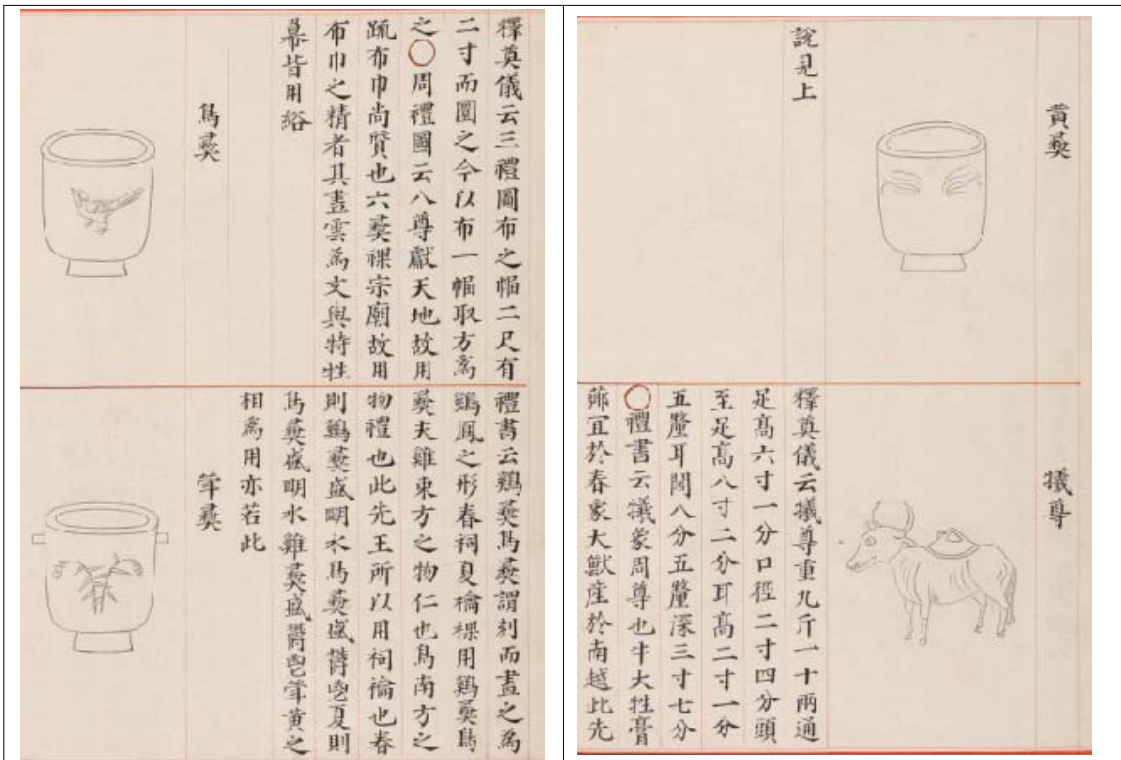 釋奠儀云三禮圖布之幅二尺有
二寸而圜之今以布一幅取方爲
之○周禮圖云八尊獻天地故用
疏布巾尚質也六彝祼宗廟故用
布巾之精者其畫雲爲文與特牲
冪皆用綌
鳥彝
禮書云鷄彝鳥彝謂刻而畫之爲
鷄鳳之形春祠夏禴祼用鷄彝鳥
彝夫雞東方之物仁也鳥南方之
物禮也此先王所以用祠禴也春
則鷄彝盛明水鳥彝盛鬱鬯夏則
鳥彝盛明水雞彝盛鬱鬯斝黃之
相爲用亦若此
斝彝
黃彝
說見上
犧尊
釋奠儀云犧尊重九斤一十兩通
足高六寸一分口徑二寸四分頭
至足高八寸二分耳高二寸一分
五釐耳闊八分五釐深三寸七分
○禮書云犧象周尊也牛大牲膏
薌冝於春象大獸産於南越此先